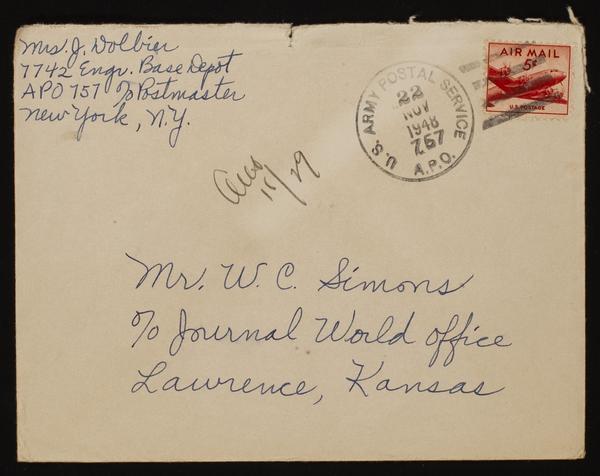 Mrs. J. Dolbier
7742 Engr. Base Depot
APO 757 % Postmaster
New York, N.Y.
U.S. ARMY POSTAL SERVICE
22
NOV
1948
757
A.P.O.
AIR MAIL
5¢
U.S. POSTAGE
Ans
11/29
Mr. W. C. Simons
% Journal World office
Lawrence, Kansas